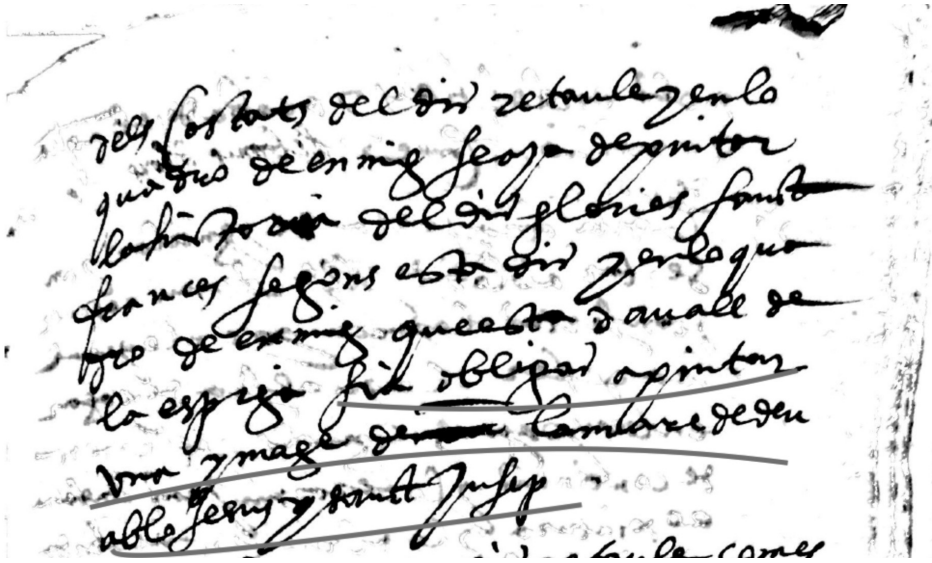 dels costats del dit retaule y en lo
quadro de en mig se aja de pintar
la historia del dit glories sanct
frances segons esta dit y en lo qua
dro de en mig que esta davall de
la espiga sia obligat a pintar
una ymage de la mare de deu
ab lo Jesus y sanct Jusep